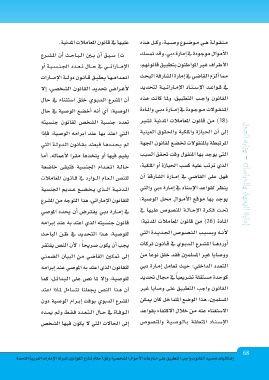 منقولة هي موضوع وصية، وكل هذه
الأموال موجودة في إمارة دبي، وقد تمسك
الأطراف غير المواطنين بتطبيق قانونهم،
مما ألزم القاضي في إمارة الشارقة البحث
في قواعد الإسناد الإماراتية لتحديد
القانون واجب التطبيق. ولما كانت هذه
المنقولات موجودة في إمارة دبي والمادة
(18) من قانون المعاملات المدنية تشير
إلى أن الحيازة والملكية والحقوق العينية
المرتبطة بالمنقولات تخضع لقانون الجهة
التي يوجد بها المنقول وقت تحقق السبب
الذي ترتب عليه كسب الحيازة أو الملكية.
فهل على القاضي في إمارة الشارقة أن
ينظر لقواعد الإسناد في إمارة دبي والتي
يوجد بها موقع الأموال محل الوصية،
تحت فكرة الإحالة المنصوص عليها في
المادة (26) من قانون المعاملات المدنية.
لأنه وبسبب النصوص الجديدة التي
أوردها المشرع الدبوي في قانون تركات
ووصايا غير المسلمين فقد خلق نوعا من
التعدد الداخلي؛ حيث تعامل إمارة دبي
كوحدة مستقلة تشريعيا في مجال تحديد
القانون واجب التطبيق على وصايا غير
المسلمين. هذا الوضع المتداخل كان يمكن
الاستغناء عنه من خلال الاكتفاء بقواعد
الإسناد المتعلقة بالوصية والمنصوص
عليها في قانون المعاملات المدنية.
ت) سبق أن بين الباحث أن المشرع
الإماراتي في حال تعدد الجنسية أو
انعدامها يطبق قانون دولة الإمارات
لأغراض تحديد القانون الشخصي، إلا
أن المشرع الدبوي خلق استثناء في حال
الوصية؛ أي أنه أخضع الوصية في حال
تعدد جنسية الشخص لقانون جنسيته
التي اعتد بها عند إبرامه الوصية، فإذا
لم يحددها فيعتد بقانون الدولة التي
يقيم فيها أو يتخذها مقرا لأعماله. أما
حالة انعدام الجنسية فتبقى خاضعة
للنص العام الوارد في قانون المعاملات
المدنية الذي يخضع عديم الجنسية
للقانون الإماراتي. هذا التوجه من المشرع
في إمارة دبي يفترض أن يحدد الموصي
قانون جنسيته الذي اعتد به عند إبرامه
للوصية. هذا التحديد في ظن الباحث
يجب أن يكون صريحا؛ لأن النص يفتقر
إلى تمكين القاضي من البيان الضمني
للقانون الذي اعتد به الموصي عند إبرامه
للوصية، وإلا لما نص على البدائل. كما
أن هذا النص يجعلنا نتساءل لماذا اعتد
المشرع الدبوي بوقت إبرام الوصية دون
الوفاة في حال التعدد فقط، ولم يمده
إلى الحالات التي لا يكون فيها الشخص
68